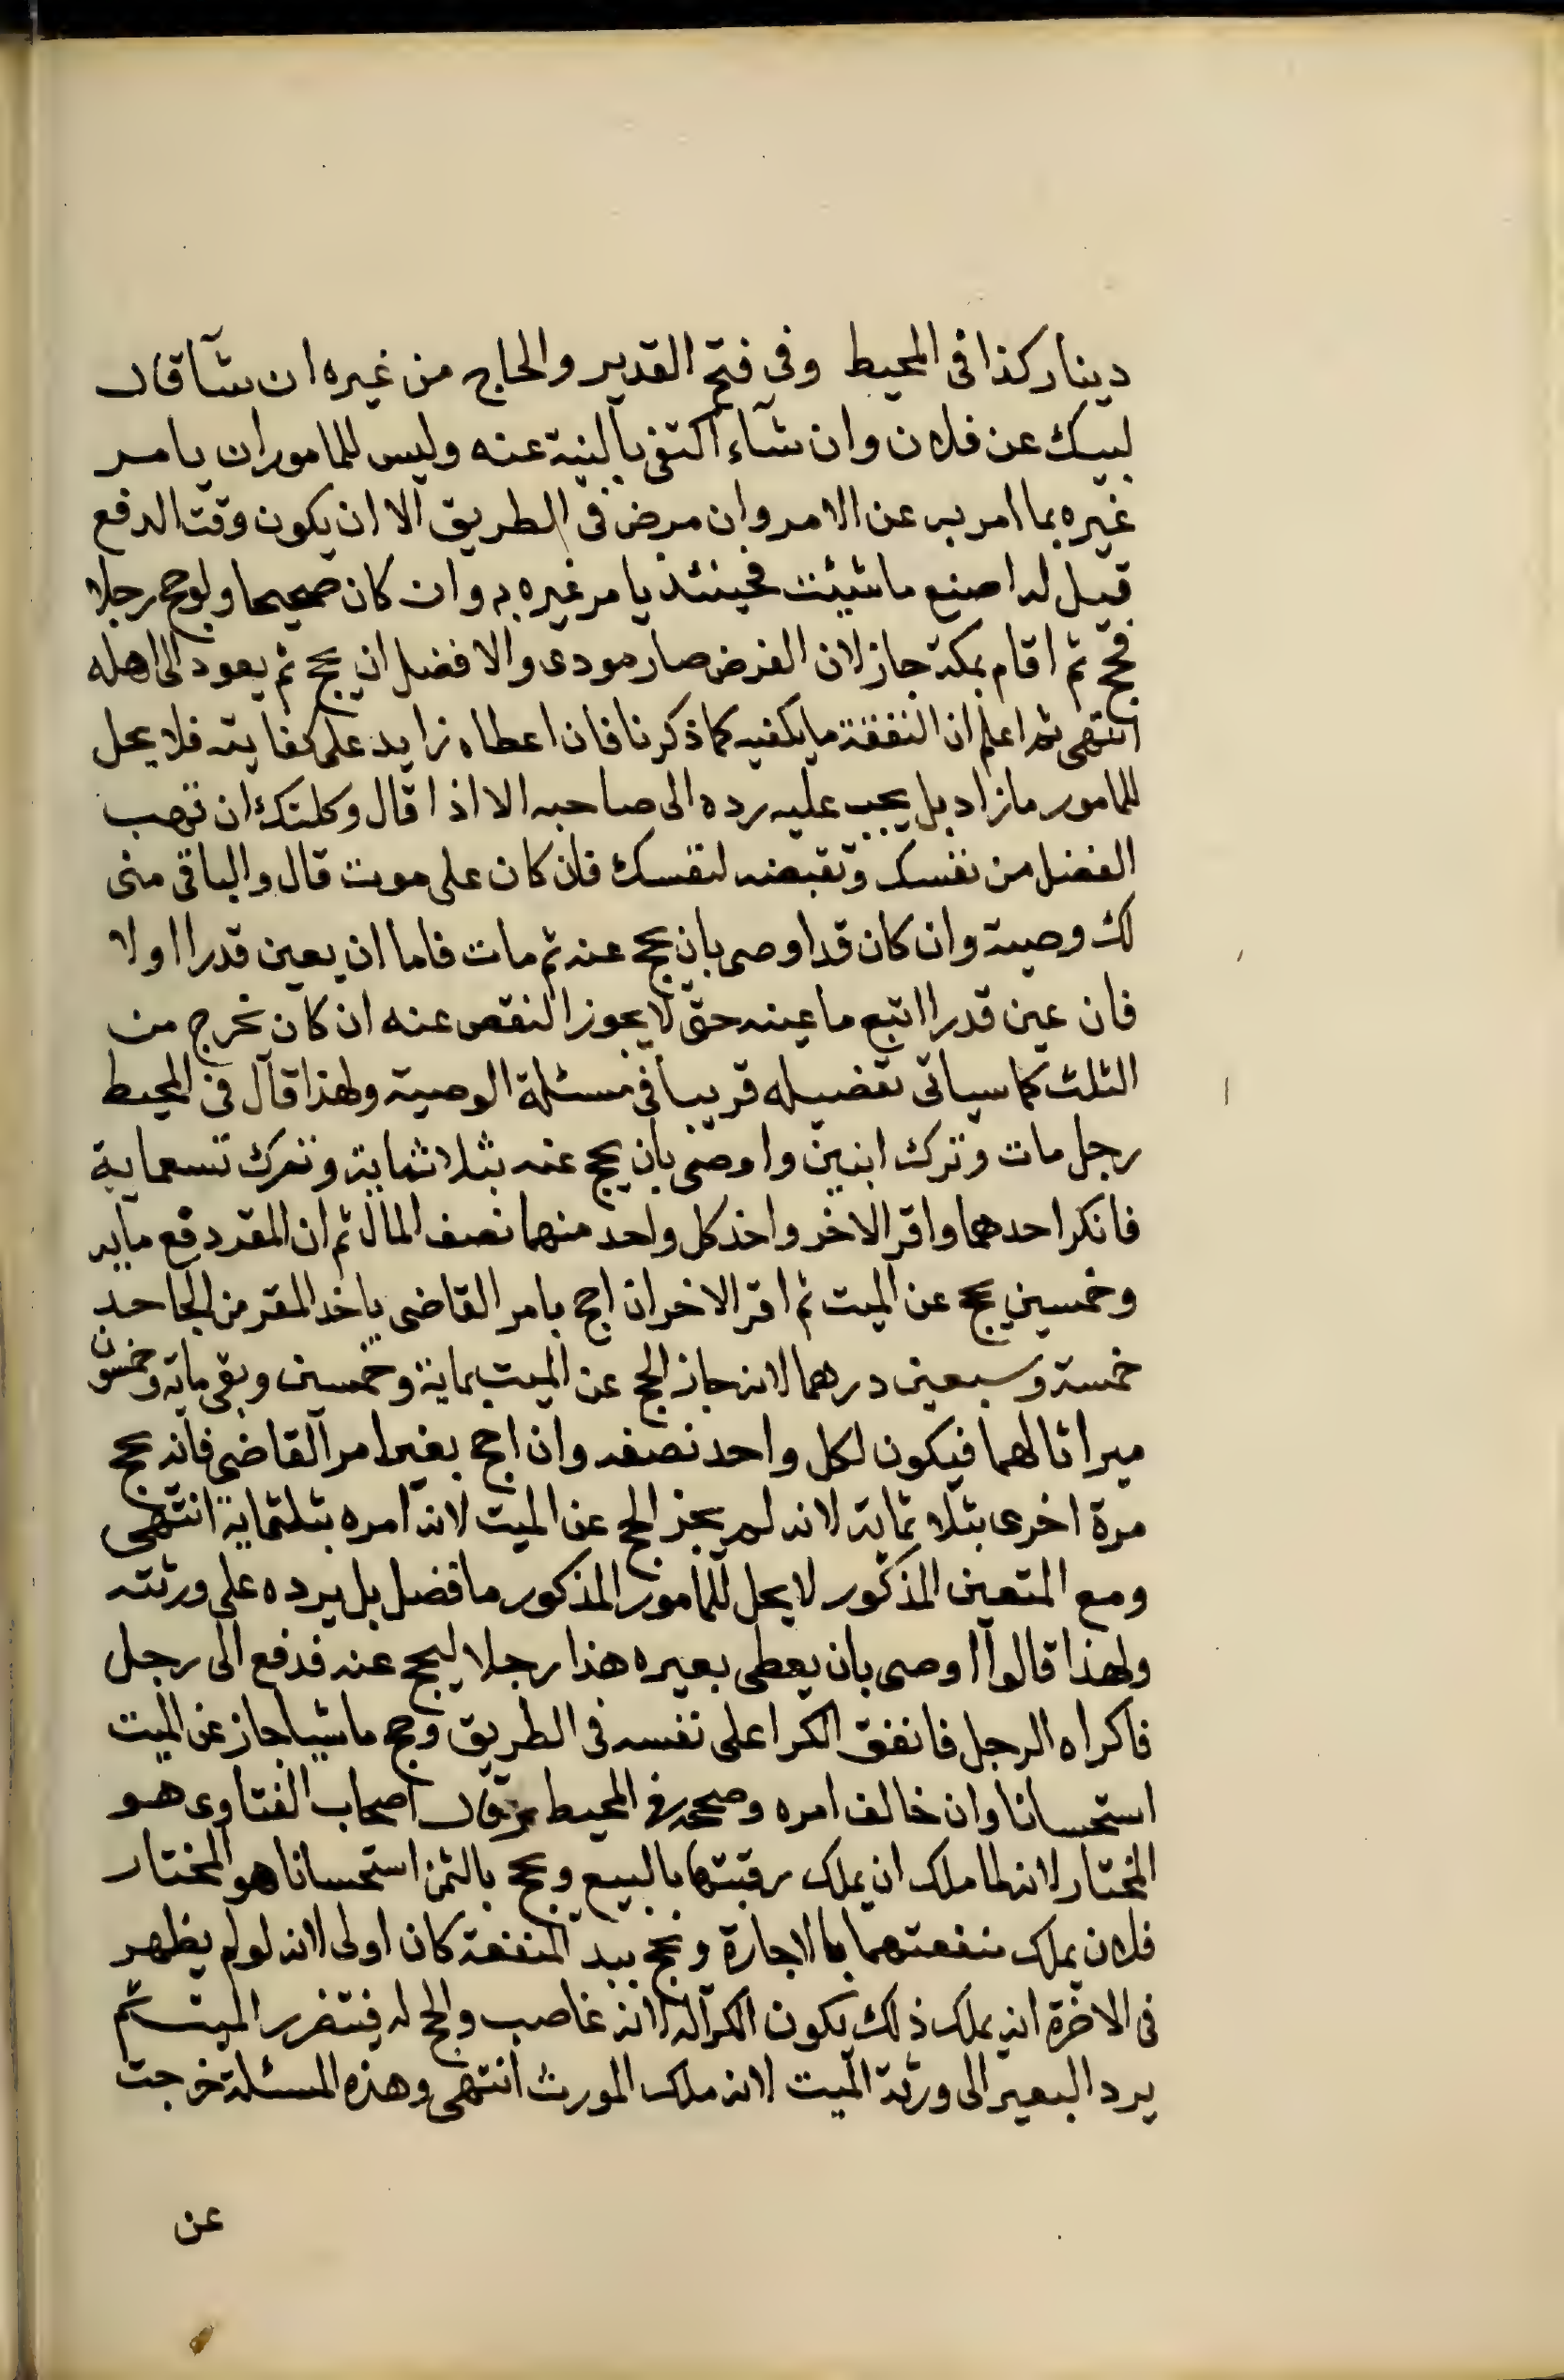 دينار كذا فى المحيط وفى فتح القدير والحاج من غيره ان شآ قال
لبيك عن فلان وان شآء اكتفى بالنية عنه وليس للمامور ان يامر
غيره بما امر به عن الامر وان مرض فى الطريق الا ان يكون وقت الدفع
قيل له اصنع ما شيئت فحينئذ يامر غيره به وان كان صحيحا ولو حج رجلا
فحج ثم اقام بمكة جاز لان الفرض صار مودى والافضل ان يحج ثم يعود الى اهله
انتهى ثم اعلم ان النفقة ما يكفيه كما ذكرنا فان اعطاه زايد على كفايته فلا يحل
للمامور ما زاد بل يجب عليه رده الى صاحبه الا اذا قال وكلتك ان تهب
الفضل من نفسك وتقبضه لنفسك فان كان على موت قال والباقى منى
لك وصية وان كان قد اوصى بان يحج عنه ثم مات فاما ان يعين قدرا اولا
فان عين قدرا اتبع ما عينه حتى لا يجوز النقص عنه ان كان يخرج من
الثلث كما سياتى تفضيله قريبا فى مسئلة الوصية ولهذا قال فى المحيط
رجل مات وترك ابنين واوصى بان يحج عنه بثلاثماية وترك تسعماية
فانكر احدهما واقر الاخر واخذ كل واحد منهما نصف المال ثم ان المقر دفع ماية
وخمسين يحج عن الميت ثم اقر الاخر ان احج بامر القاضى ياخذ المقر من الجاحد
خمسة وسبعين درهما لانه جاز الحج عن الميت بماية وخمسين وبقى ماية وخمسون
ميراثا لهما فيكون لكل واحد نصفه وان احج بغير امر القاضى فانه يحج
مرة اخرى بثلاثماية لانه لم يجز الحج عن الميت لانه امره بثلثماية انتهى
ومع المتعين المذكور لا يحل للمامور المذكور ما فضل بل يرده على ورثته
ولهذا قالوا اوصى بان يعطى بعيره هذا رجلا ليحج عنه فدفع الى رجل
فاكراه الرجل فانفق الكرا على نفسه فى الطريق وحج ماشيا جاز عن الميت
استحسانا وان خالف امره وصححه فى المحيط وقال اصحاب الفتاوى هو
المختار لانه لما ملك ان يملك رقبتها بالبيع ويحج بالثمن استحسانا هو المختار
فلان يملك منفعتهما بالاجارة ويحج ببد المنفعة كان اولى لانه لو لم يظهر
فى الاخرة انه يملك ذلك يكون الكرآ له لانه غاصب والحج له فيتضرر الميت ثم
يرد البعير الى ورثة الميت لانه ملك المورث انتهى وهذه المسئلة خرجت
عن